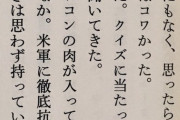 だもなく、思ったら
はコワかった。
い。クイズに当たっ
開いてきた。
コンの肉が入って
なか。米軍に徹底抗
きは思わず持ってい